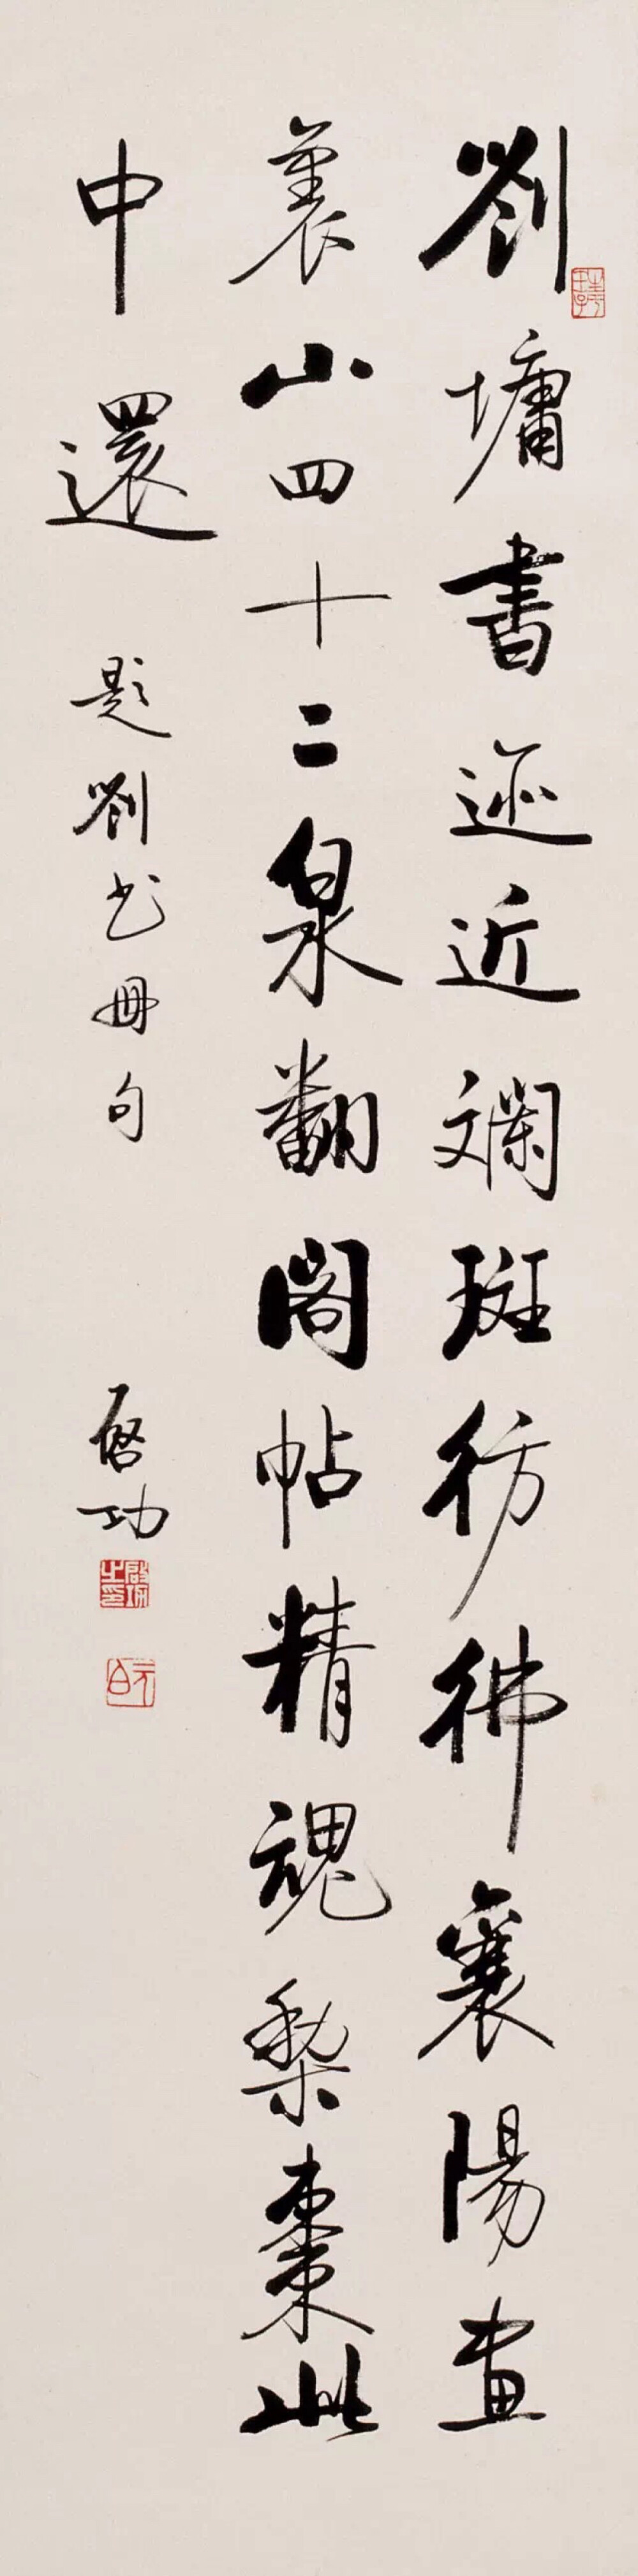 劉墉書迹近斕斑彷彿襄陽畫
裏山四十二泉翻閣帖精魂棃棗此
中還
題劉書冊句
啓功
啓功之印
元白